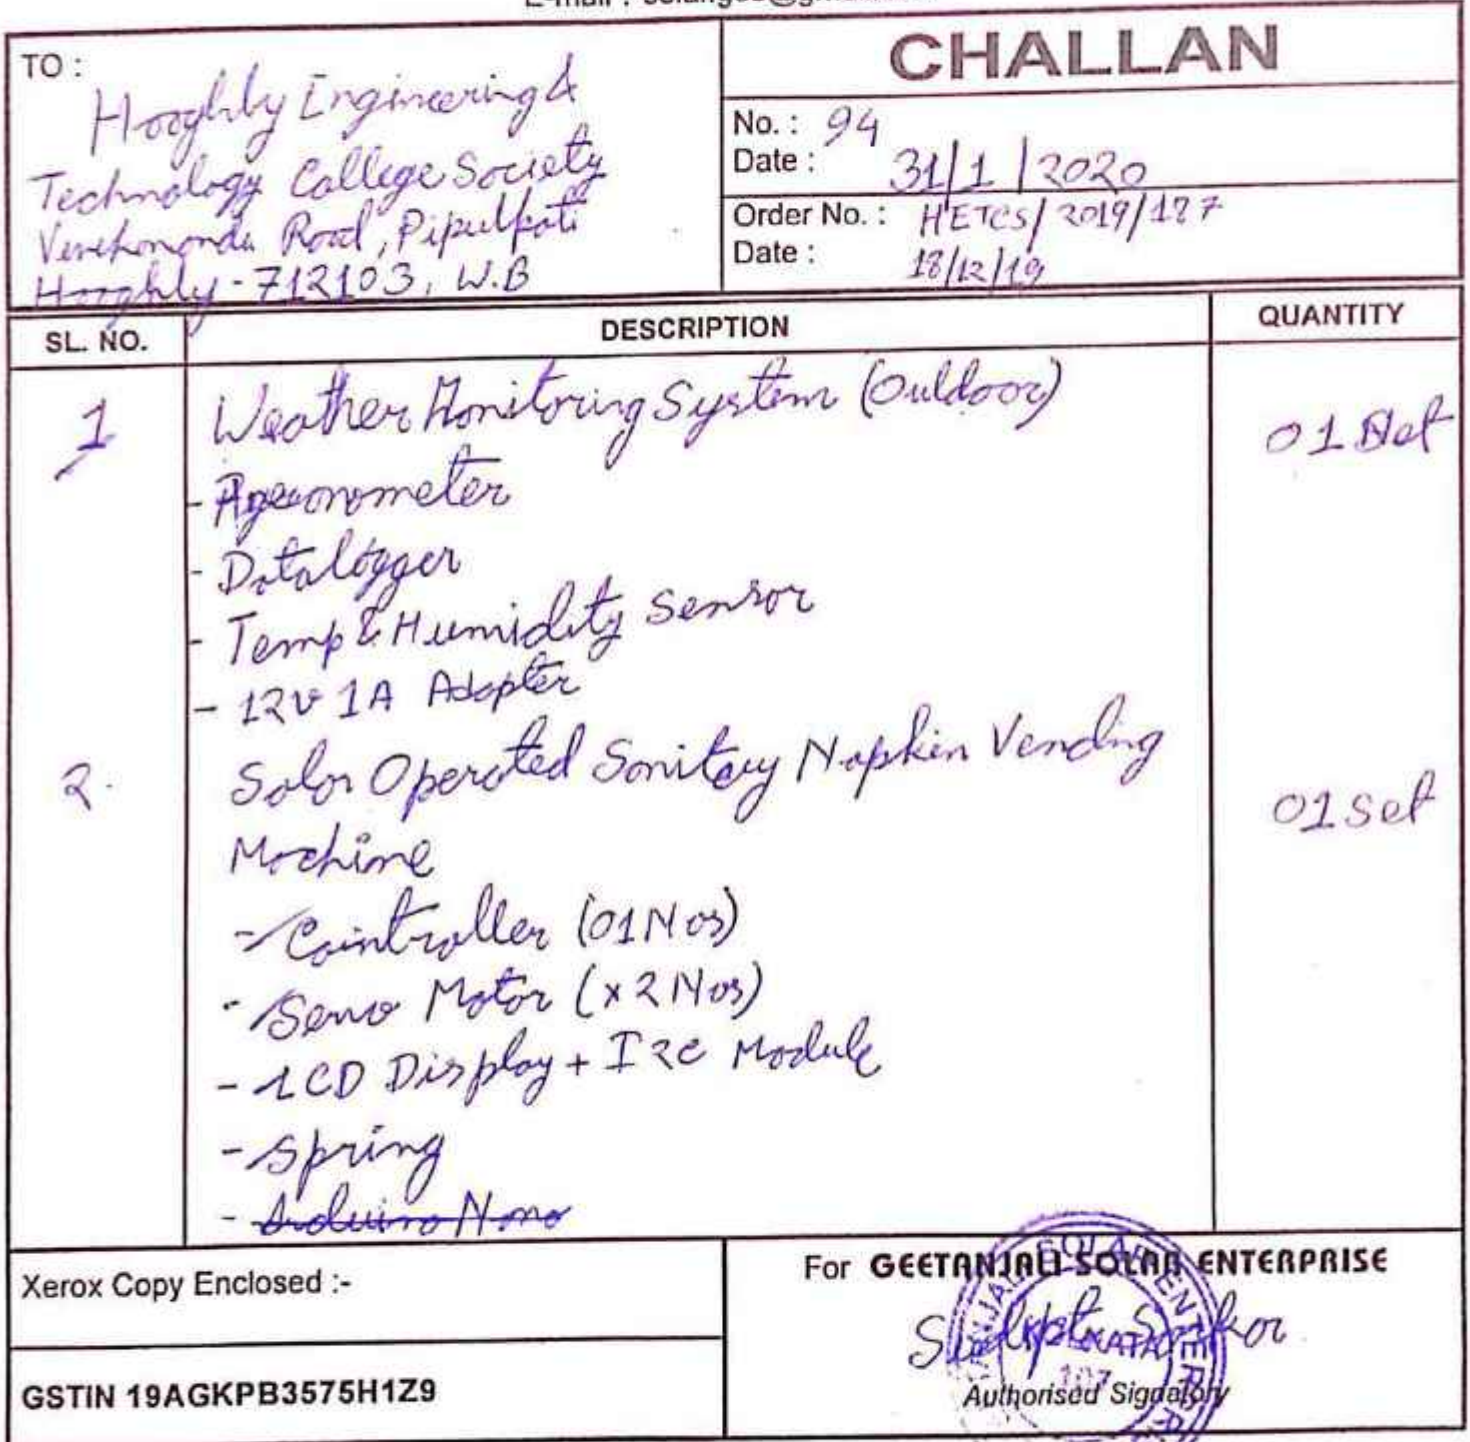 TO :
Hooghly Engineering &
Technology College Society
Road, Pipulpati
Hooghly - 712103, W.B
CHALLAN
No. : 94
Date : 31/1/2020
Order No. : HETCS/2019/127
Date : 18/12/19
SL. NO. DESCRIPTION QUANTITY
1 Weather Monitoring System (Outdoor) 01 Set
- Datalogger
- Temp & Humidity Sensor
- 12V 1A Adapter
2. Solar Operated Sanitary Napkin Vending 01 Set
Machine
- Controller (01 Nos)
- Servo Motor (x 2 Nos)
- LCD Display + I2C Module
- Spring
- Arduino Nano
Xerox Copy Enclosed :-
For GEETANJALI SOLAR ENTERPRISE
Authorised Signatory
GSTIN 19AGKPB3575H1Z9